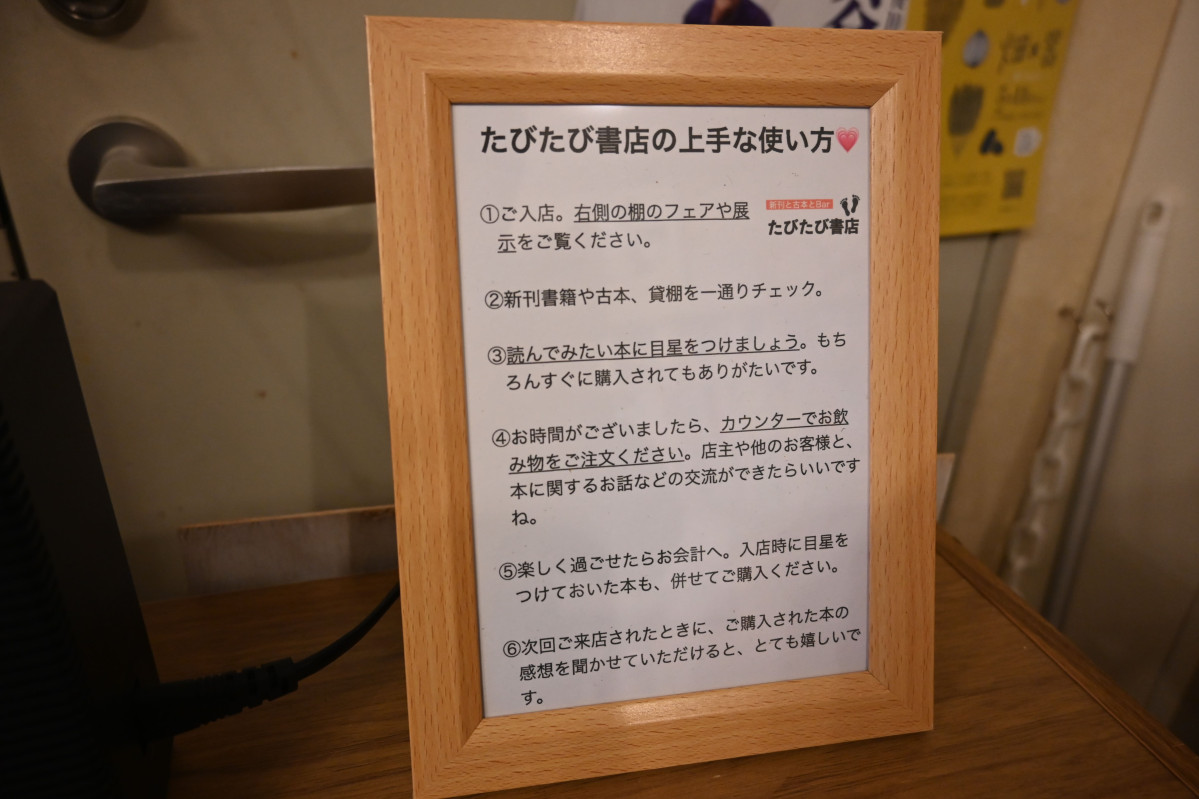 たびたび書店の上手な使い方💗
①ご入店。右側の棚のフェアや展
示をご覧ください。
新刊と古本とBar
たびたび書店
②新刊書籍や古本、貸棚を一通りチェック。
③読んでみたい本に目星をつけましょう。もち
ろんすぐに購入されてもありがたいです。
④お時間がございましたら、カウンターでお飲
み物をご注文ください。店主や他のお客様と、
本に関するお話などの交流ができたらいいです
ね。
⑤楽しく過ごせたらお会計へ。入店時に目星を
つけておいた本も、併せてご購入ください。
⑥次回ご来店されたときに、ご購入された本の
感想を聞かせていただけると、とても嬉しいで
す。